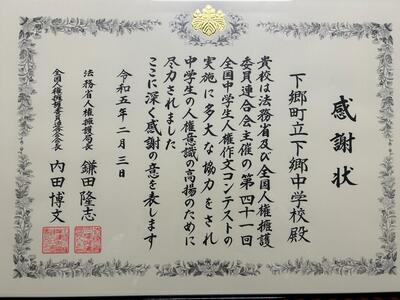 感謝状
下郷町立下郷中学校殿
貴校は法務省及び全国人権擁護
委員連合会主催の第四十一回
全国中学生人権作文コンテストの
実施に多大な協力をされ
中学生の人権意識の高揚のために
尽力されました
ここに深く感謝の意を表します
令和五年二月三日
法務省人権擁護局長 鎌田隆志
全国人権擁護委員連合会会長 内田博文